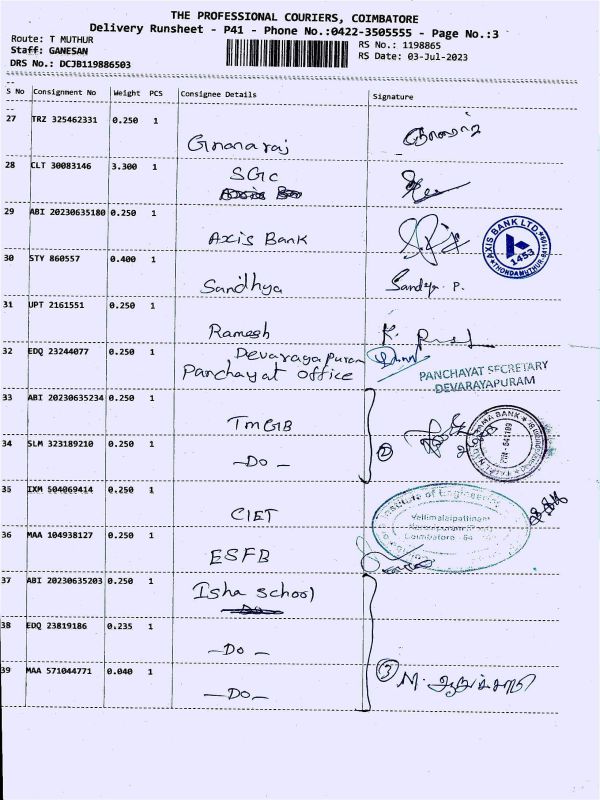 THE PROFESSIONAL COURIERS, COIMBATORE
Delivery Runsheet - P41 - Phone No.:0422-3505555 - Page No.:3
Route: T MUTHUR
RS No.: 1198865
Staff: GANESAN
RS Date: 03-Jul-2023
DRS No.: DCJB119886503
S No Consignment No Weight PCS Consignee Details Signature
27 TRZ 325462331 0.250 1
Gnanaraj
28 CLT 30083146 3.300 1
SGC
29 ABI 20230635180 0.250 1
Axis Bank
AXIS BANK LTD.
1453
30 STY 860557 0.400 1
Sandhya
31 UPT 2161551 0.250 1
Ramesh
32 EDQ 23244077 0.250 1
Devarayapuram
Panchayat office
PANCHAYAT SECRETARY
DEVARAYAPURAM
33 ABI 20230635234 0.250 1
TMGB
34 SLM 323189210 0.250 1
-DO-
2
35 IXM 504069414 0.250 1
CIET
Institute of Engineering
Vellimalaipattinam
Coimbatore - 64
36 MAA 104938127 0.250 1
ESFB
37 ABI 20230635203 0.250 1
Isha school
38 EDQ 23819186 0.235 1
-DO-
39 MAA 571044771 0.040 1
-DO-
3